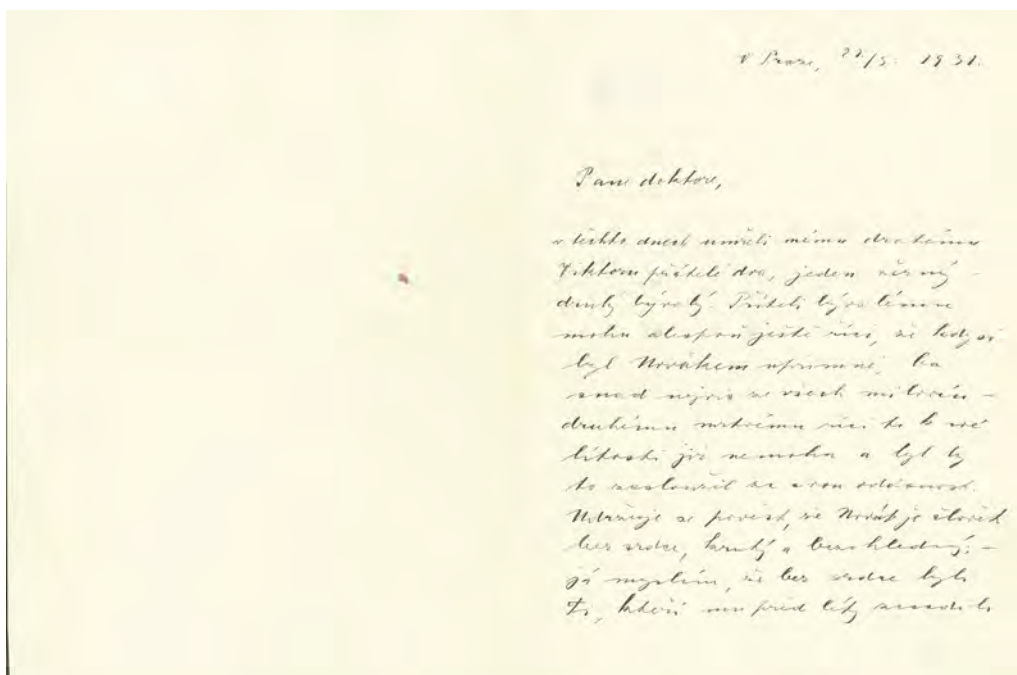 V Praze, 22/5. 1931.
Pane doktore,
v těchto dnech umřeli mému drahému
Viktoru přátelé dva, jeden věrný –
druhý bývalý. Příteli bývalému
mohu alespoň ještě říci, že kdysi
byl Novákem upřímně, ba
snad nejvíc ze všech milován –
druhému mrtvému říci to k své
lítosti již nemohu a byl by
to zasloužil za svou oddanost.
Udržuje se pověst, že Novák je člověk
bez srdce, krutý a bezohledný; –
já myslím, že bez srdce byli
ti, kteří mu před léty zasadili